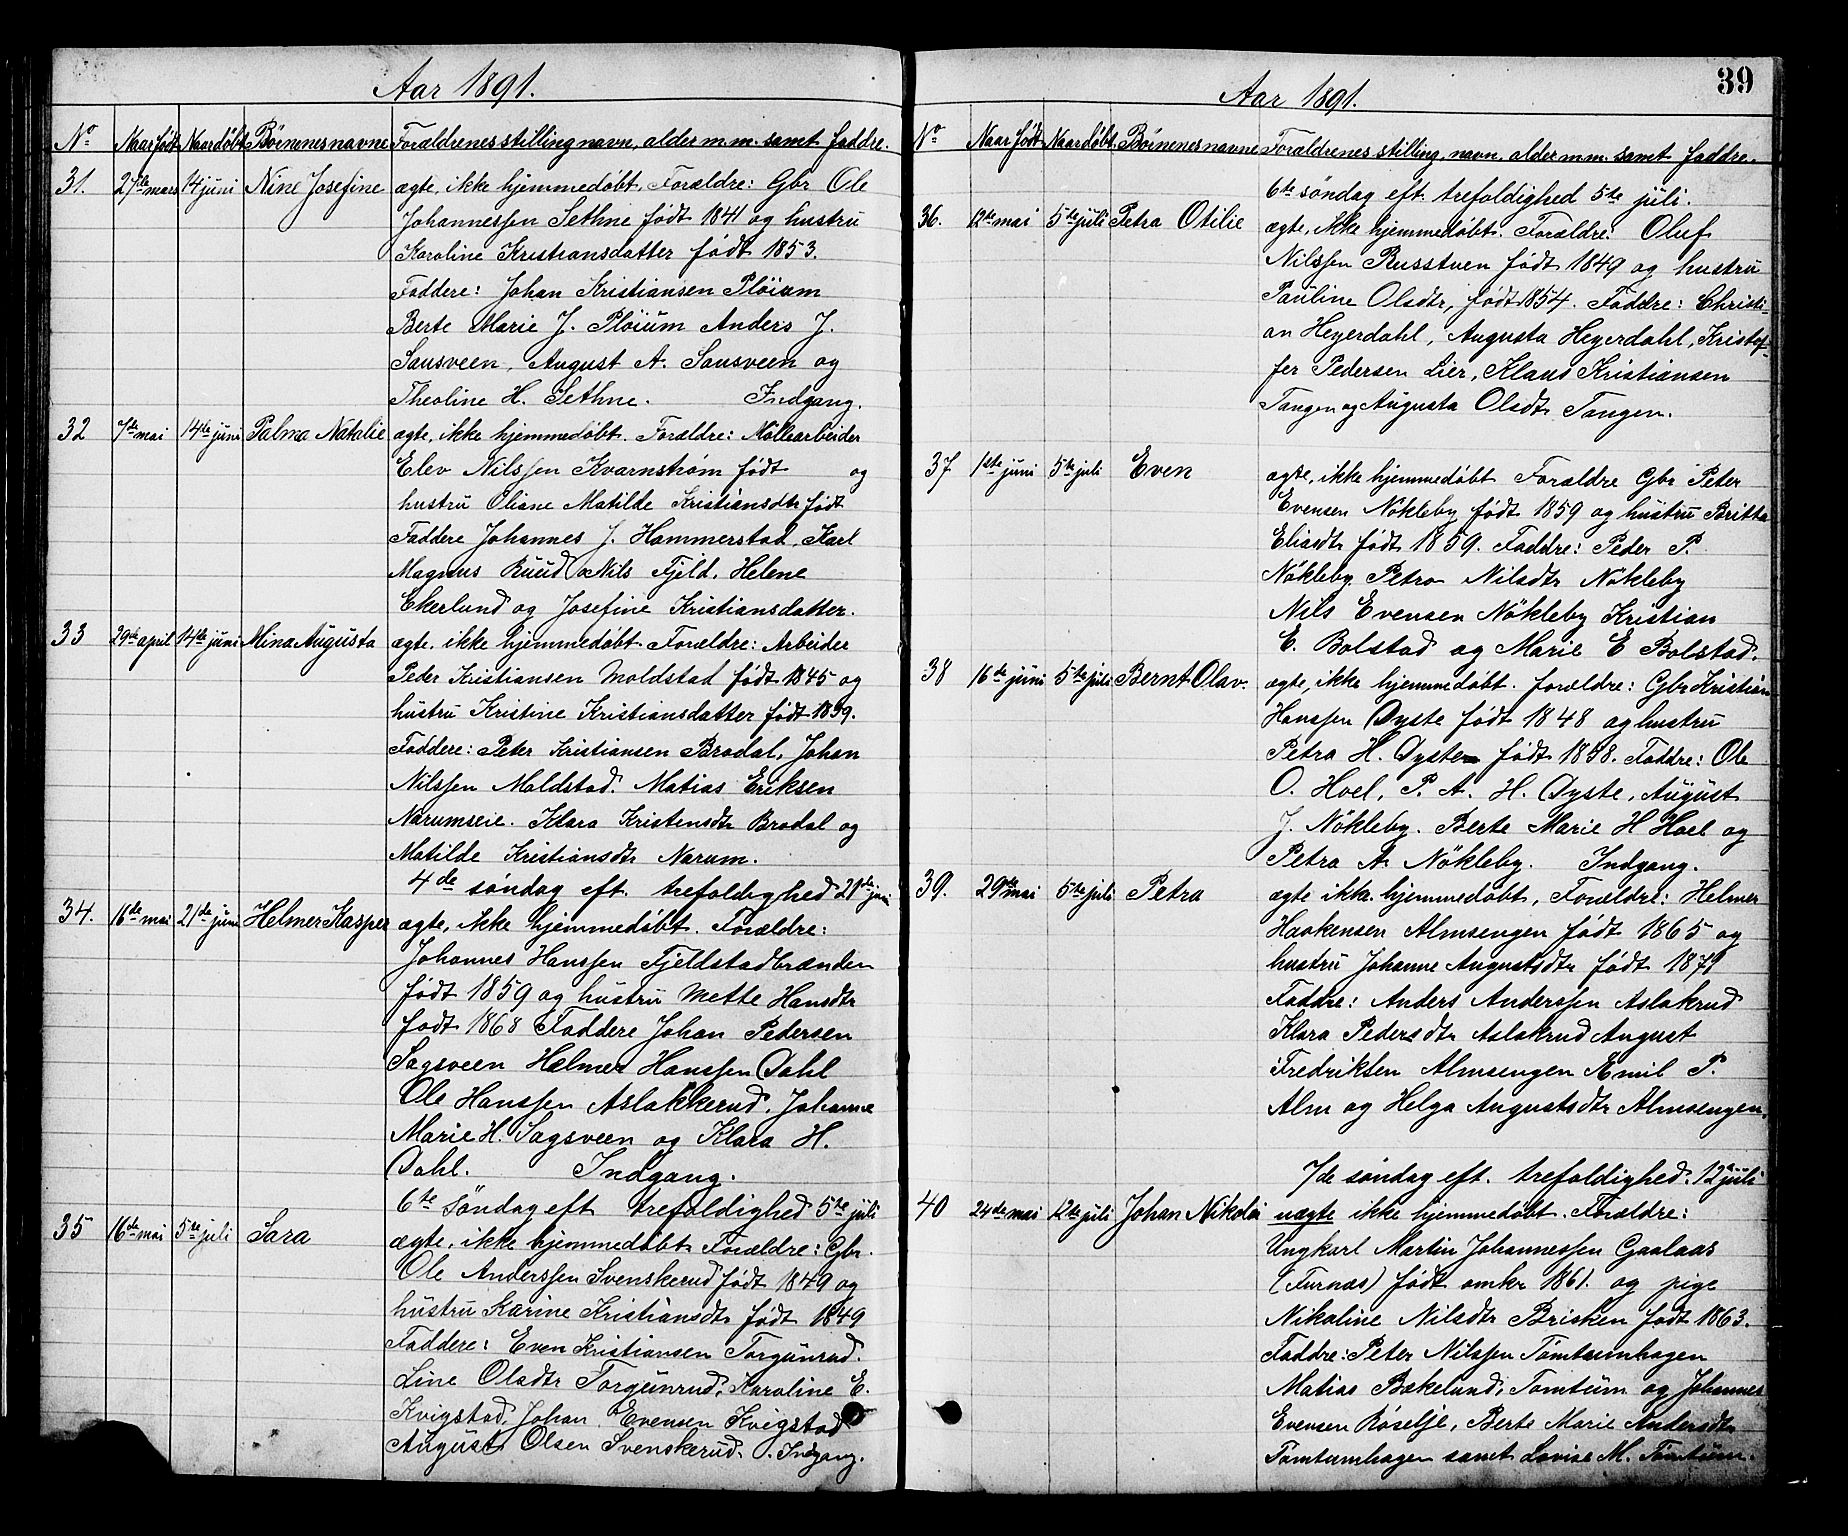 Aar 1891.
No Naar født Naar døbt Børnenes navne Forældrenes stilling navn, alder m.m. samt faddre.
31. 27de mars 14 juni Nine Josefine ægte, ikke hjemmedøbt, Forældre: Gbr Ole
Johannessen Sethne født 1841 og hustru
Karoline Kristiansdatter født 1853.
Faddere: Johan Kristiansen Pløium
Berte Marie J. Pløium Anders J.
Sausveen, August A. Sausveen og
Theoline H. Sethne. Indgang.
32 7de mai 14de juni Palma Natalie ægte, ikke hjemmedøbt. Forældre: Møllearbeider
Elev Nilssen Kvarnstrøm født og
hustru Oliane Matilde Kristiansdtr født
Faddere Johannes J. Hammerstad, Karl
Magnus Ruud Nils Fjeld, Helene
Ekerlund og Josefine Kristiansdatter.
33 29de april 14de juni Mina Augusta ægte, ikke hjemmedøbt Forældre: Arbeider
Peder Kristiansen Moldstad født 1845 og
hustru Kristine Kristiansdatter født 1859.
Faddere: Peter Kristiansen Brodal, Johan
Nilssen Moldstad. Matias Eriksen
Narumseie. Klara Kristensdtr Brodal og
Matilde Kristiansdtr Narum.
4de søndag eft. trefoldighed 21de juni
34. 16de mai 21de juni Helmer Kasper ægte, ikke hjemmedøbt. Forældre:
Johannes Hanssen Fjeldstadbrænden
født 1859 og hustru Mette Hansdtr
født 1868 Faddere Johan Pedersen
Sagsveen Helmer Hanssen Dahl
Ole Hanssen Aslakkerud, Johanne
Marie H. Sagsveen og Klara H.
Dahl. Indgang.
6te søndag eft trefoldighed 5te juli
35 16de mai 5te juli Sara ægte, ikke hjemmedøbt Forældre: Gbr.
Ole Anderssen Svenskerud født 1849 og
hustru Karine Kristiansdtr født 1849
Faddere: Even Kristiansen Torgunrud.
Line Olsdtr Torgunrud, Karoline E.
Kvigstad, Johan Evensen Kvigstad
August Olsen Svenskerud. Indgang.
39
Aar 1891.
No Naar født Naar døbt. Børnenes navne Forældrenes stilling, navn, alder m.m. samt faddre.
6te søndag eft. trefoldighed 5te juli.
36. 12de mai 5te juli Petra Otilie ægte, ikke hjemmedøbt. Forældre: Oluf
Nilssen Russtuen født 1849 og hustru
Pauline Olsdtr, født 1854. Faddre: Christi-
an Heyerdahl, Augusta Heyerdahl, Kristof-
fer Pedersen Lier, Klaus Kristiansen
Tangen og Augusta Olsdtr Tangen.
37 1ste juni 5te juli Even ægte, ikke hjemmedøbt Forældre Gbr Peter
Evensen Nökleby født 1859 og hustru Britta
Eliasdtr født 1859. Faddre: Peder P.
Nökleby Petra Nilsdtr Nökleby
Nils Evensen Nökleby Kristian
E. Bolstad og Marie E Bolstad.
38 16de juni 5te juli Bernt Olav. ægte, ikke hjemmedøbt. forældre: Gbr Kristian
Hanssen Øyste født 1848 og hustru
Petra H. Øyste født 1858. Faddre: Ole
O. Hoel, P. A. H. Øyste, August
J. Nökleby. Berte Marie H Hoel og
Petra A. Nökleby. Indgang.
39. 29de mai 5te juli Petra ægte ikke hjemmedøbt, Forældre: Helmer
Haakensen Almsengen født 1865 og
hustru Johanne Augustsdtr født 1871
Faddre: Anders Anderssen Aslakrud
Klara Pedersdtr Aslakrud August
Fredriksen Almsengen Emil P.
Alm og Helga Augustsdtr Almsengen.
7de søndag eft. trefoldighed. 12 juli
40 24de mai 12te juli Johan Nikolai uægte ikke hjemmedøbt. Forældre:
Ungkarl Martin Johannessen Gaalaas
(Furnæs) født omkr 1861. og pige
Nikaline Nilsdtr Brisken født 1863.
Faddre: Peter Nilssen Tomtumhagen
Matias Bækelund, Tomtum og Johannes
Evensen Røselje, Berte Marie Andersdtr
Tomtumhagen samt Lovise M. Tomtum.